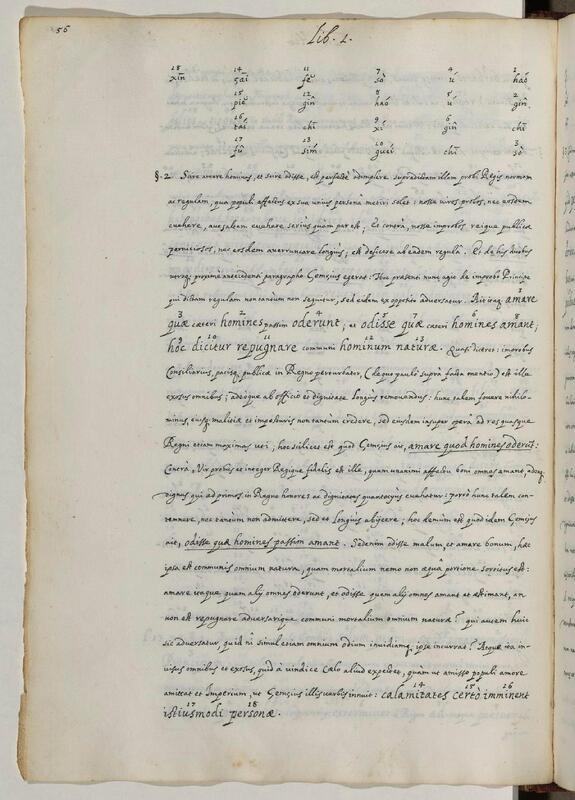 56
Lib. 1.
18 14 11 7 4 1
xin çai fu sò ú haó
15 12 8 5 2
piĕ gin haó ú gin
16 9 6
tái chi xí gin chi
17 13 10 3
fu sim gueí chi sò
§. 2 Scire amare homines, et scire odisse, est perfectè adimplere supradictam illam probi Regis normam
ac regulam, qua populi affectus ex sua unius persona metiri solet: nosse viros probos, nec eosdem
evehere, aut saltem evehere seriùs quàm par est, Et contrà, nosse improbos reique publicæ
perniciosos, nec eosdem averruncare longiùs; est deficere ab eadem regulâ. Et de his duobus
proximè antecedenti paragrapho Çemçius egerat: Hoc præsenti nunc agit de improbo Principe
qui dictam regulam non tantùm non sequitur, sed eidem ex opposito adversatur. Ait itaque 1 amare
3 quæ cæteri 2 homines passim 4 oderunt; et 5 odisse 7 quæ cæteri 6 homines amant;
hoc 10 dicitur 11 repugnare communi 12 hominum 13 naturæ. Quasi diceret: improbus
Consiliarius, pacisque publicæ in Regno perturbator, (de quo paulò suprà facta mentio) est ille
exosus omnibus; adeoque ab officio et dignitate longiùs removendus: hunc talem fovere nihilo-
minus, eiusque malitiæ et imposturis non tantùm credere, sed eiusdem insuper operâ ad res quasque
Regni etiam maximas uti; hoc scilicet est quod Çemçius ait, amare quod homines oderint:
Contrà, Vir probus et integer Regique fidelis est ille, quem unanimi affectu boni omnes amant, adeoque
dignus qui ad primos in Regno honores ac dignitates quantociùs evehatur: porrò hunc talem con-
temnere, nec tantùm non admittere, sed et longiùs abijcere; hoc demum est quod idem Çemçius
ait, odisse quæ homines passim amant. Sed enim odisse malum, et amare bonum, hæc
ipsa est communis omnium natura, quam mortalium nemo non æquâ portione sortitus est:
amare itaque quem alij omnes oderunt, et odisse quem alij omnes amant et æstimant, an
non est repugnare adversarique communi mortalium omnium naturæ? qui autem huic
sic adversatur, quid ni simul etiam omnium odium invidiamque ipse incurrat? Atque ita in-
visus omnibus et exosus, quid à vindice Cælo aliud expectet, quàm ut amisso populi amore
amittat et Imperium, ut Çemçius illis verbis innuit: 14 calamitates 15 certò 16 imminent
17 istiusmodi 18 personæ.